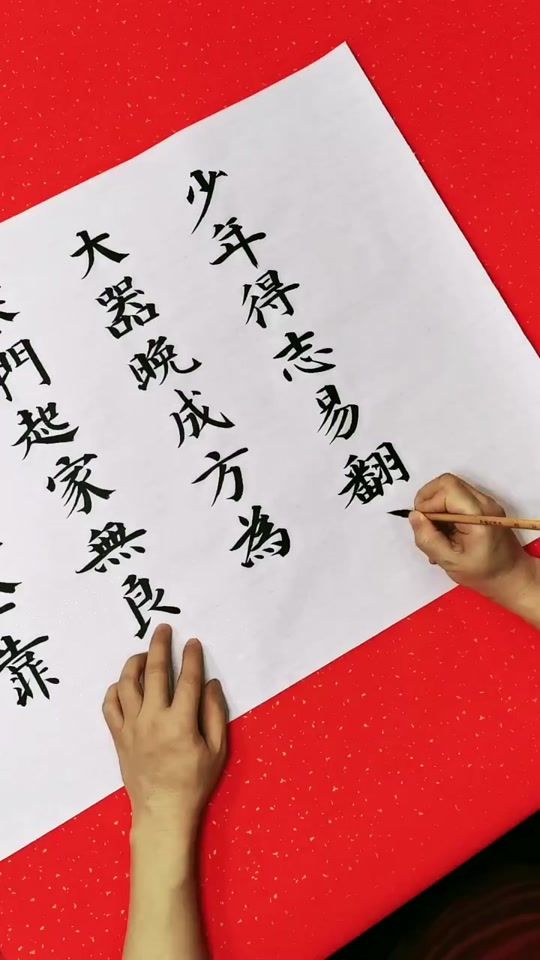 少年得志易翻
大器晚成方為
門起家無良
靠